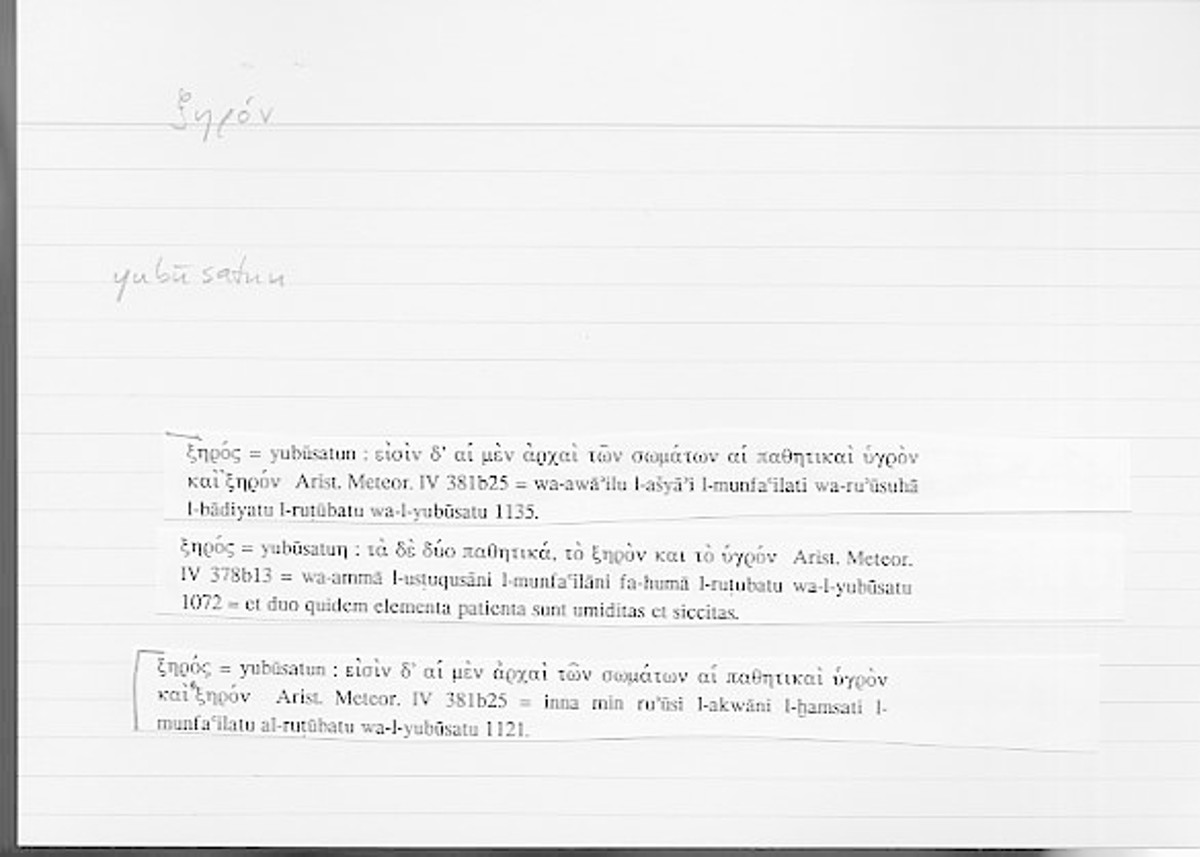 ξηρόν
yubūsatun
ξηρός = yubūsatun : εἰσὶν δ' αἱ μὲν ἀρχαὶ τῶν σωμάτων αἱ παθητικαὶ ὑγρὸν
καὶ ξηρόν Arist. Meteor. IV 381b25 = wa-awāʾilu l-ašyāʾi l-munfaʿilati wa-ruʾūsuhā
l-bādiyatu l-ruṭūbatu wa-l-yubūsatu 1135.
ξηρός = yubūsatun : τὰ δὲ δύο παθητικά, τὸ ξηρὸν και τὸ ὑγρόν Arist. Meteor.
IV 378b13 = wa-ammā l-usṭuqusāni l-munfaʿilāni fa-humā l-ruṭubatu wa-l-yubūsatu
1072 = et duo quidem elementa patienta sunt umiditas et siccitas.
ξηρός = yubūsatun : εἰσὶν δ' αἱ μὲν ἀρχαὶ τῶν σωμάτων αἱ παθητικαὶ ὑγρὸν
καὶ ξηρόν Arist. Meteor. IV 381b25 = inna min ruʾūsi l-akwāni l-ḫamsati l-
munfaʿilatu al-ruṭūbatu wa-l-yubūsatu 1121.